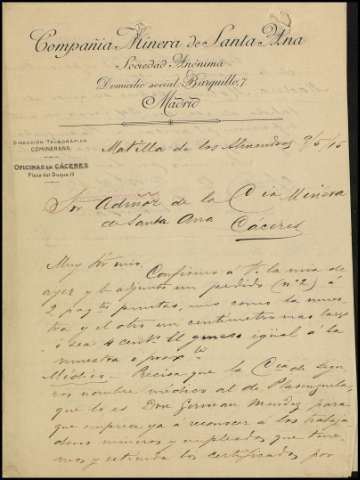 Compañia Minera de Santa Ana
Sociedad Anónima
Domicilio social: Barquillo, 7
Madrid
DIRECCIÓN TELEGRÁFICA
COMINERANA
OFICINAS EN CÁCERES
Plaza del Duque
Matilla de los Almendros 9/5/16
Sor Admór de la Cia Minera
de Santa Ana Cáceres
Muy Sr mio. Confirmo á V. la mia de
ayer y le adjunto un pedido (nº 2) á
2 puntas, uno como la mues
tra y el otro un centimetro mas largo
ó sea 4 centˢ El grueso igual á la
muestra
Médico - Precisa que la Cia de Segu
ros nombre médico al de Plasenzuela,
que lo es Don German Mendez para
que empiece ya á reconocer á los trabaja
dores mineros y empleados que tene
mos y extienda los certificados por